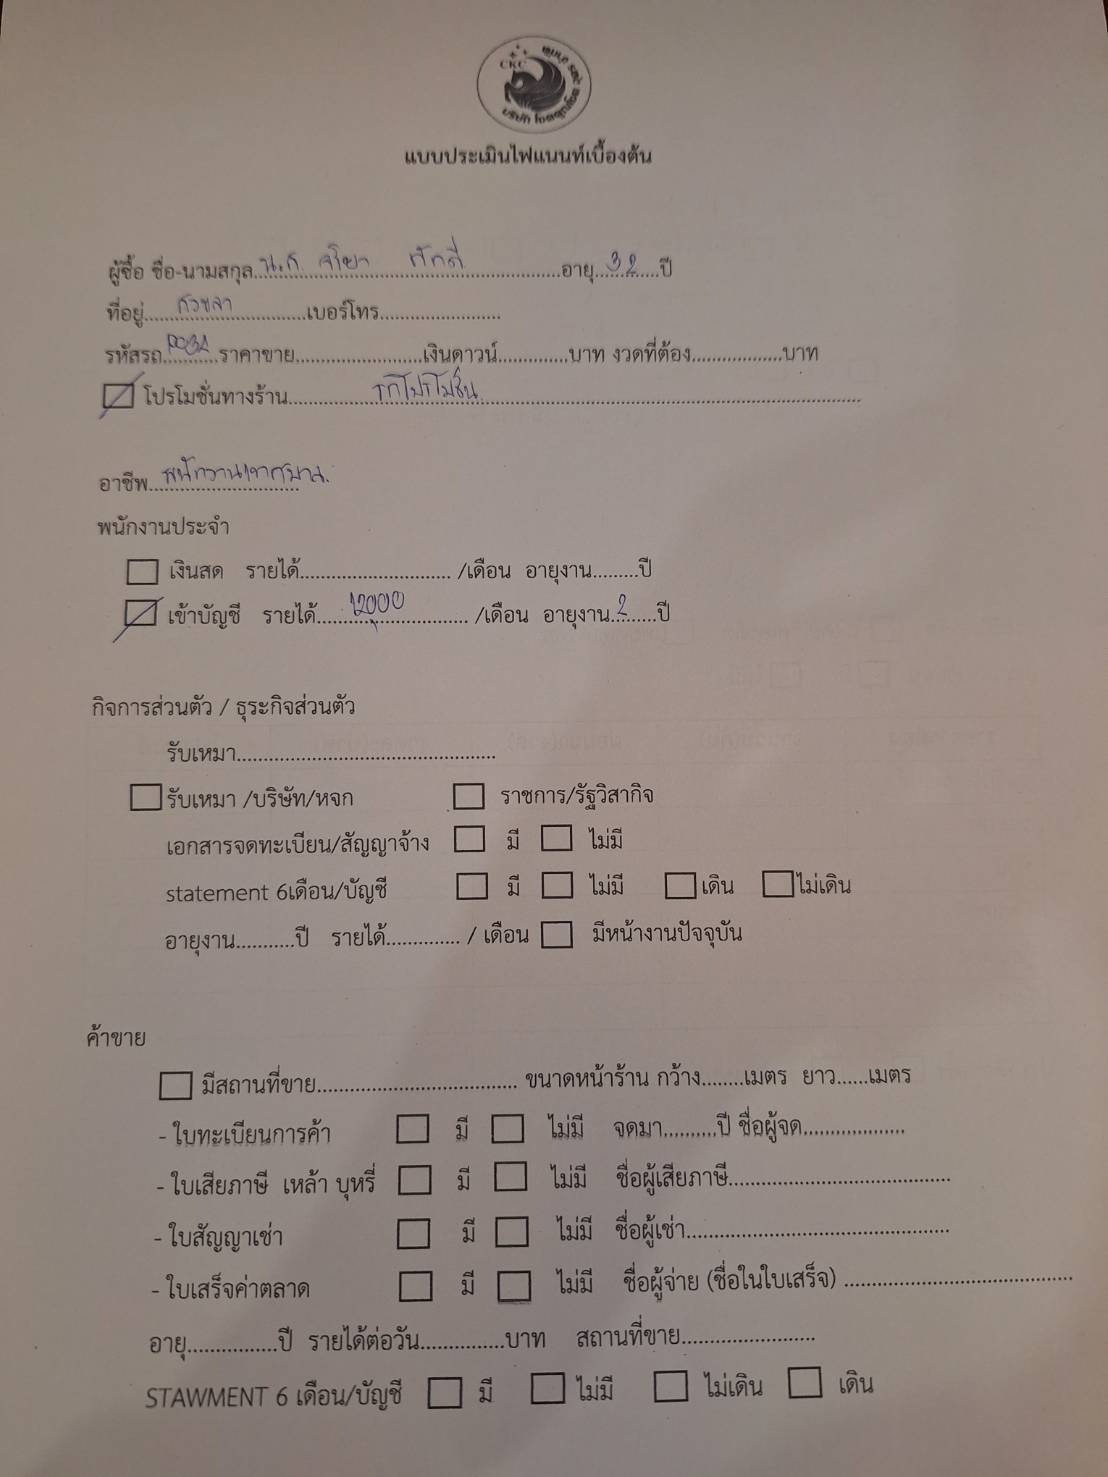 CKC
แบบประเมินไฟแนนท์เบื้องต้น
ผู้ซื้อ ชื่อ-นามสกุล..น.ส. จริยา ภักดี..อายุ..32..ปี
ที่อยู่..สงขลา..เบอร์โทร........................
รหัสรถ..P032..ราคาขาย........................เงินดาวน์.............บาท งวดที่ต้อง.................บาท
โปรโมชั่นทางร้าน..รถโปรโมชั่น..
อาชีพ..พนักงานเทศบาล.
พนักงานประจำ
เงินสด รายได้............................. /เดือน อายุงาน.........ปี
เข้าบัญชี รายได้..12,000.. /เดือน อายุงาน..2..ปี
กิจการส่วนตัว / ธุระกิจส่วนตัว
รับเหมา..................................................
รับเหมา /บริษัท/หจก ราชการ/รัฐวิสากิจ
เอกสารจดทะเบียน/สัญญาจ้าง มี ไม่มี
statement 6เดือน/บัญชี มี ไม่มี เดิน ไม่เดิน
อายุงาน...........ปี รายได้.............. / เดือน มีหน้างานปัจจุบัน
ค้าขาย
มีสถานที่ขาย...................................... ขนาดหน้าร้าน กว้าง........เมตร ยาว......เมตร
- ใบทะเบียนการค้า มี ไม่มี จดมา..........ปี ชื่อผู้จด...................
- ใบเสียภาษี เหล้า บุหรี่ มี ไม่มี ชื่อผู้เสียภาษี..........................................
- ใบสัญญาเช่า มี ไม่มี ชื่อผู้เช่า..................................................
- ใบเสร็จค่าตลาด มี ไม่มี ชื่อผู้จ่าย (ชื่อในใบเสร็จ) ...........................................
อายุ.................ปี รายได้ต่อวัน................บาท สถานที่ขาย.........................
STAWMENT 6 เดือน/บัญชี มี ไม่มี ไม่เดิน เดิน